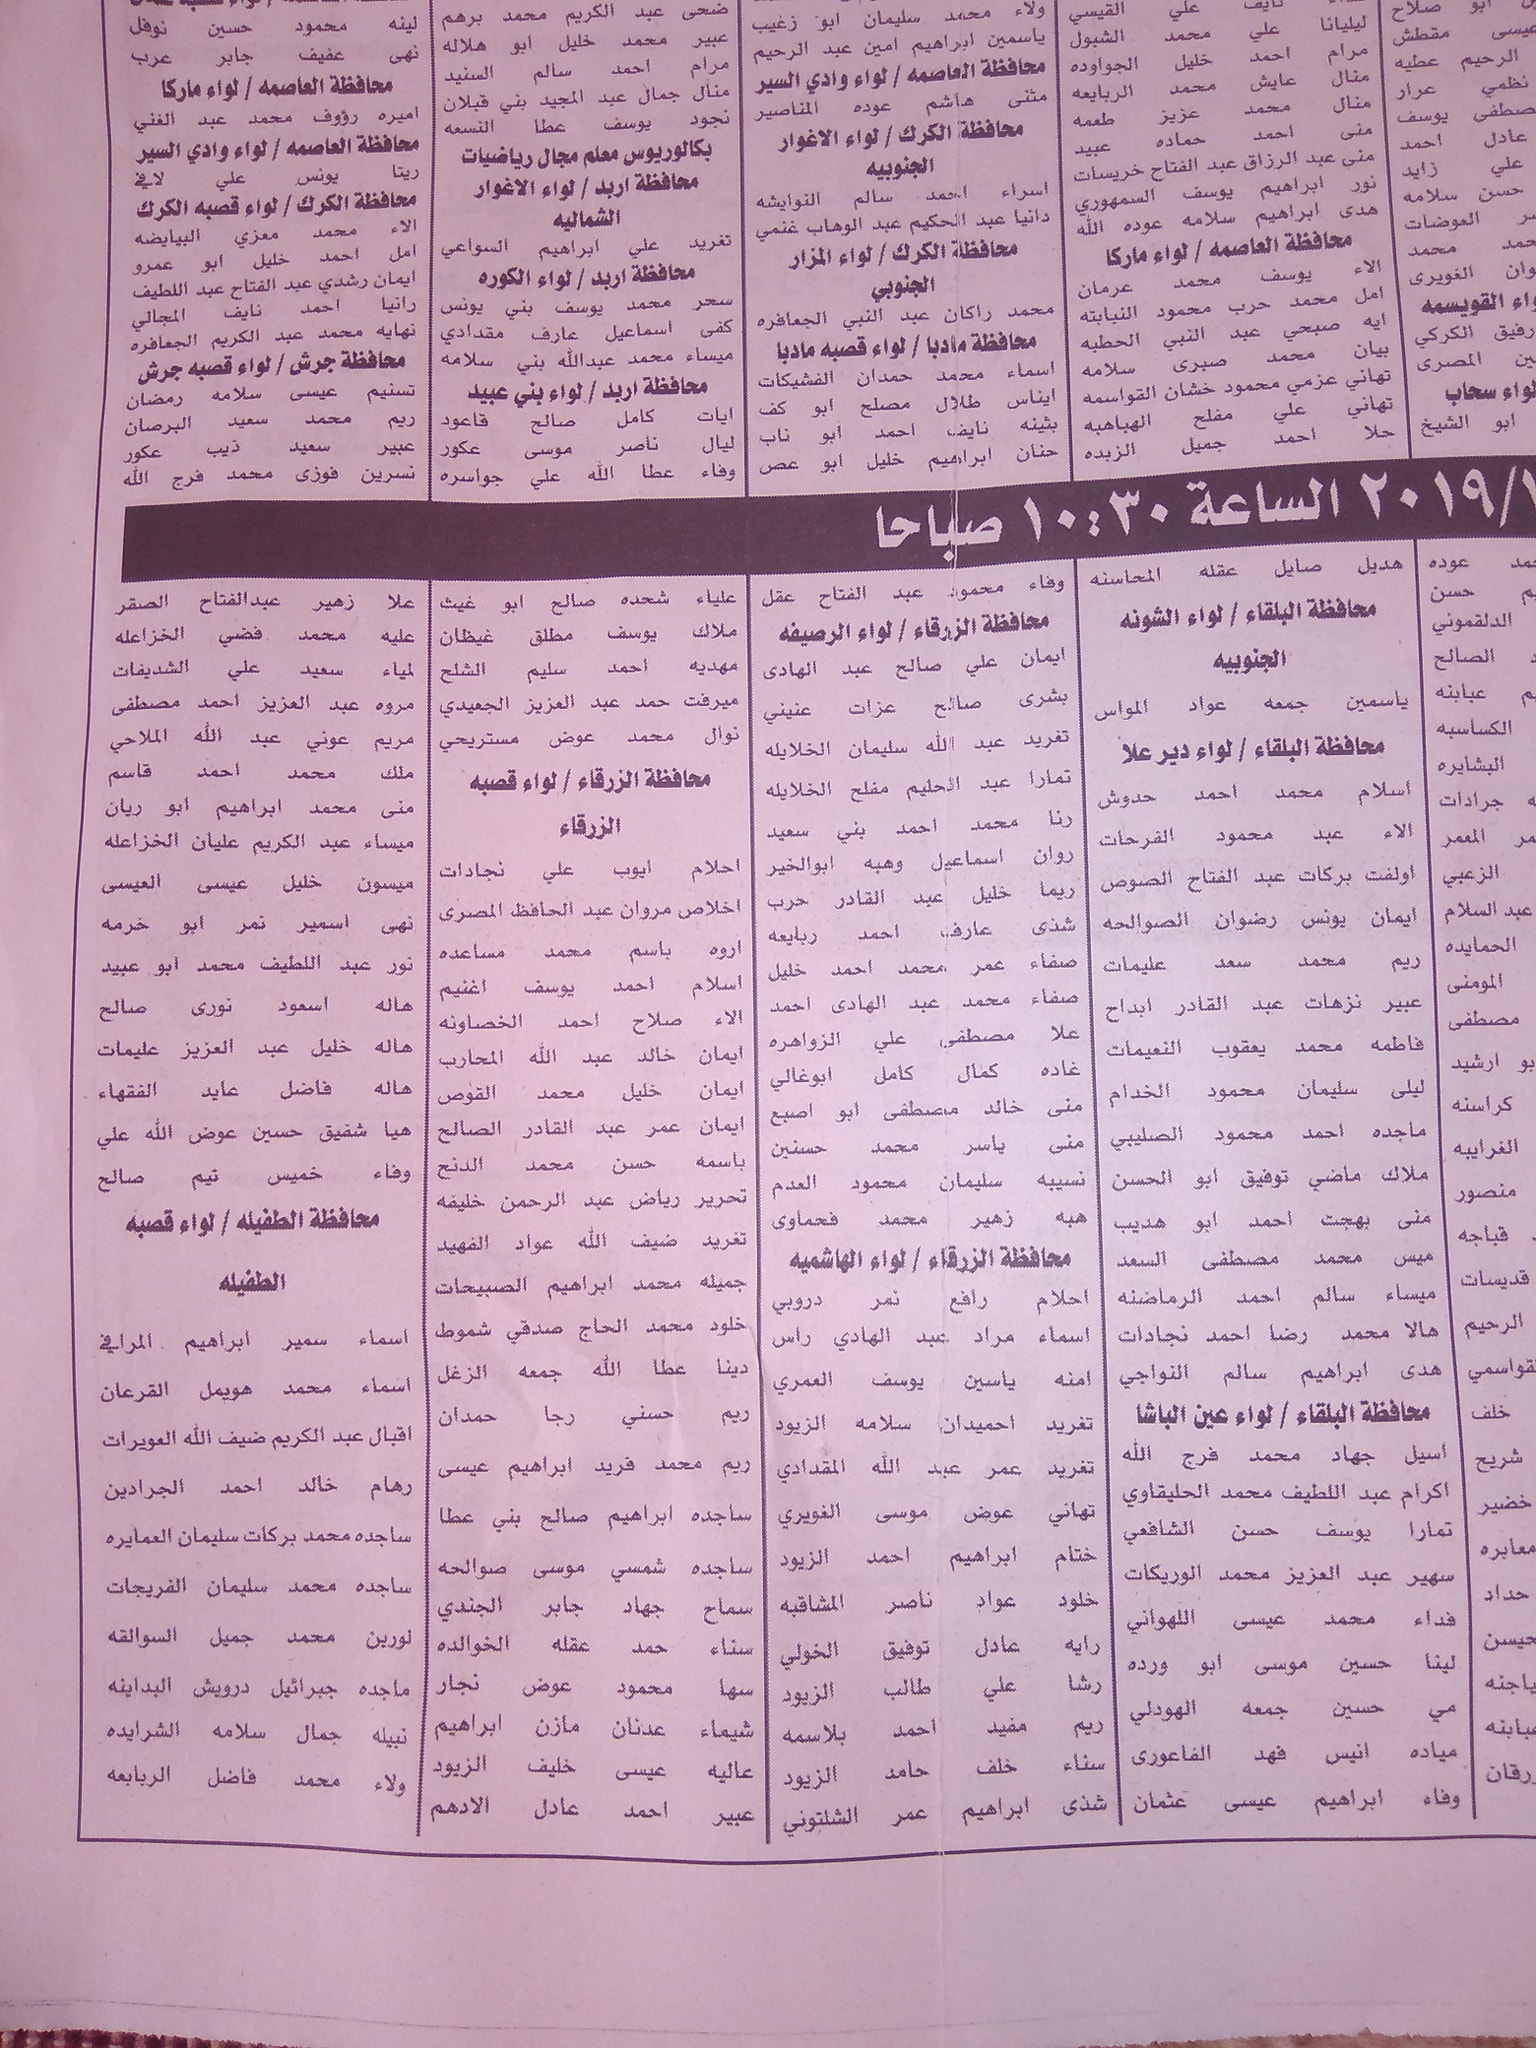 ابو صلاح
عيسى مقطش
الرحيم عطيه
نظمي عرار
مصطفى يوسف
عادل احمد
علي زايد
حسن سلامه
العوضات
محمد
الغويري
لواء القويسمه
رفيق الكركي
المصرى
لواء سحاب
ابو الشيخ
نايف علي القيسي
ليليانا علي محمد الشبول
مرام احمد خليل الجواوده
منال عايش محمد الربايعه
منال محمد عزيز طعمه
منى احمد حماده عبيد
منى عبد الرزاق عبد الفتاح خريسات
نور ابراهيم يوسف السمهوري
هدى ابراهيم سلامه عوده الله
محافظة العاصمه / لواء ماركا
الاء يوسف محمد عرمان
امل محمد حرب محمود النبابته
ايه صبحي عبد النبي الحطبه
بيان محمد صبرى سلامه
تهاني عزمي محمود خشان القواسمه
تهاني علي مفلح الهباهبه
حلا احمد جميل الزبده
ولاء محمد سليمان ابو زغيب
ياسمين ابراهيم امين عبد الرحيم
محافظة العاصمه / لواء وادي السير
مثنى هاشم عوده المناصير
محافظة الكرك / لواء الاغوار
الجنوبيه
اسراء احمد سالم النوايشه
دانيا عبد الحكيم عبد الوهاب غنمي
محافظة الكرك / لواء المزار
الجنوبي
محمد راكان عبد النبي الجعافره
محافظة مادبا / لواء قصبه مادبا
اسماء محمد حمدان الفشيكات
ايناس طلال مصلح ابو كف
بثينه نايف احمد ابو ناب
حنان ابراهيم خليل ابو عص
ضحى عبد الكريم محمد برهم
عبير محمد خليل ابو هلاله
مرام احمد سالم السنيد
منال جمال عبد المجيد بني قبلان
نجود يوسف عطا النسعه
بكالوريوس معلم مجال رياضيات
محافظة اربد / لواء الاغوار
الشماليه
تغريد علي ابراهيم السواعي
محافظة اربد / لواء الكوره
سحر محمد يوسف بني يونس
كفى اسماعيل عارف مقدادي
ميساء محمد عبدالله بني سلامه
محافظة اربد / لواء بني عبيد
ايات كامل صالح قاعود
ليال ناصر موسى عكور
وفاء عطا الله علي جواسره
لينه محمود حسين نوفل
نهى عفيف جابر عرب
محافظة العاصمه / لواء ماركا
اميره رؤوف محمد عبد الغني
محافظة العاصمه / لواء وادي السير
ريتا يونس علي لافي
محافظة الكرك / لواء قصبه الكرك
الاء محمد معزي البيايضه
امل احمد خليل ابو عمرو
ايمان رشدي عبد الفتاح عبد اللطيف
رانيا احمد نايف المجالي
نهايه محمد عبد الكريم الجعافره
محافظة جرش / لواء قصبه جرش
تسنيم عيسى سلامه رمضان
ريم محمد سعيد البرصان
عبير سعيد ذيب عكور
نسرين فوزى محمد فرج الله
٢٠١٩/ الساعة ١٠:٣٠ صباحا
عوده
حسن
الدلقموني
الصالح
عبابنه
الكساسبه
البشايره
جرادات
المعمر
الزعبي
عبد السلام
الحمايده
المومنى
مصطفى
ارشيد
كراسنه
الغرايبه
منصور
قباجه
قديسات
الرحيم
القواسمي
خلف
شريح
خضير
معابره
حداد
هديل صايل عقله المحاسنه
محافظة البلقاء / لواء الشونه
الجنوبيه
ياسمين جمعه عواد المواس
محافظة البلقاء / لواء دير علا
اسلام محمد احمد حدوش
الاء عبد محمود الفرحات
اولفت بركات عبد الفتاح الصوص
ايمان يونس رضوان الصوالحه
ريم محمد سعد عليمات
عبير نزهات عبد القادر ابداح
فاطمه محمد يعقوب النعيمات
ليلى سليمان محمود الخدام
ماجده احمد محمود الصليبي
ملاك ماضي توفيق ابو الحسن
منى بهجت احمد ابو هديب
ميس محمد مصطفى السعد
ميساء سالم احمد الرماضنه
هالا محمد رضا احمد نجادات
هدى ابراهيم سالم النواجي
محافظة البلقاء / لواء عين الباشا
اسيل جهاد محمد فرج الله
اكرام عبد اللطيف محمد الحليقاوي
تمارا يوسف حسن الشافعي
سهير عبد العزيز محمد الوريكات
فداء محمد عيسى اللهواني
لينا حسين موسى ابو ورده
مي حسين جمعه الهودلي
مياده انيس فهد الفاعورى
وفاء ابراهيم عيسى عثمان
وفاء محمود عبد الفتاح عقل
محافظة الزرقاء / لواء الرصيفه
ايمان علي صالح عبد الهادى
بشرى صالح عزات عنيني
تغريد عبد الله سليمان الخلايله
تمارا عبد الحليم مفلح الخلايله
رنا محمد احمد بني سعيد
روان اسماعيل وهبه ابوالخير
ريما خليل عبد القادر حرب
شذى عارف احمد ربايعه
صفاء عمر محمد احمد خليل
صفاء محمد عبد الهادى احمد
علا مصطفى علي الزواهره
غاده كمال كامل ابوغالي
منى خالد مصطفى ابو اصبع
منى ياسر محمد حسنين
نسيبه سليمان محمود العدم
هبه زهير محمد فحماوى
محافظة الزرقاء / لواء الهاشميه
احلام رافع نمر دروبي
اسماء مراد عبد الهادي راس
امنه ياسين يوسف العمري
تغريد احميدان سلامه الزيود
تغريد عمر عبد الله المقدادي
تهاني عوض موسى الغويري
ختام ابراهيم احمد الزيود
خلود عواد ناصر المشاقبه
رايه عادل توفيق الخولي
رشا علي طالب الزيود
ريم مفيد احمد بلاسمه
سناء خلف حامد الزيود
شذى ابراهيم عمر الشلتوني
علياء شحده صالح ابو غيث
ملاك يوسف مطلق غيظان
مهديه احمد سليم الشلح
ميرفت حمد عبد العزيز الجعيدي
نوال محمد عوض مستريحي
محافظة الزرقاء / لواء قصبه
الزرقاء
احلام ايوب علي نجادات
اخلاص مروان عبد الحافظ المصرى
اروه باسم محمد مساعده
اسلام احمد يوسف اغنيم
الاء صلاح احمد الخصاونه
ايمان خالد عبد الله المحارب
ايمان خليل محمد القوص
ايمان عمر عبد القادر الصالح
باسمه حسن محمد الدنح
تحرير رياض عبد الرحمن خليفه
تغريد ضيف الله عواد الفهيد
جميله محمد ابراهيم الصبيحات
خلود محمد الحاج صدقي شموط
دينا عطا الله جمعه الزغل
ريم حسني رجا حمدان
ريم محمد فريد ابراهيم عيسى
ساجده ابراهيم صالح بني عطا
ساجده شمسي موسى صوالحه
سماح جهاد جابر الجندي
سناء حمد عقله الخوالده
سها محمود عوض نجار
شيماء عدنان مازن ابراهيم
عاليه عيسى خليف الزيود
عبير احمد عادل الادهم
علا زهير عبدالفتاح الصقر
عليه محمد فضي الخزاعله
لمياء سعيد علي الشديفات
مروه عبد العزيز احمد مصطفى
مريم عوني عبد الله الملاحي
ملك محمد احمد قاسم
منى محمد ابراهيم ابو ريان
ميساء عبد الكريم عليان الخزاعله
ميسون خليل عيسى العيسى
نهى اسمير نمر ابو خرمه
نور عبد اللطيف محمد ابو عبيد
هاله اسعود نورى صالح
هاله خليل عبد العزيز عليمات
هاله فاضل عايد الفقهاء
هيا شفيق حسين عوض الله علي
وفاء خميس تيم صالح
محافظة الطفيله / لواء قصبه
الطفيله
اسماء سمير ابراهيم المرافي
اسماء محمد هويمل القرعان
اقبال عبد الكريم ضيف الله العويرات
رهام خالد احمد الجرادين
ساجده محمد بركات سليمان العمايره
ساجده محمد سليمان الفريجات
لورين محمد جميل السوالقه
ماجده جبرائيل درويش البداينه
نبيله جمال سلامه الشرايده
ولاء محمد فاضل الربابعه